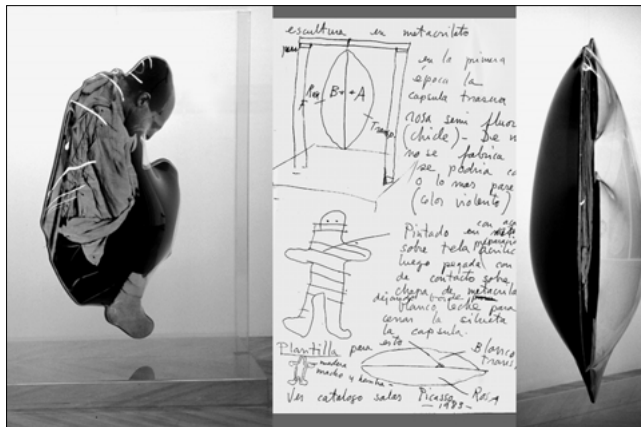 escultura en metacrilato
en la primera
época la
capsula trasera
rosa semi fluor
(chicle) – De
no se fabrica
se podria
o lo mas pare
(color violento)
Rosa B A
Transp.
Pintado en
con
sobre tela
luego pegada con
de contacto sobre
chapa de metacrila
dejando borde
blanco leche para
cerrar la silueta
la capsula.
Plantilla para esto
Blanco
trans
madera
macho y hembra
Rosa
Ver catalogo salas Picasso
– 1983 –